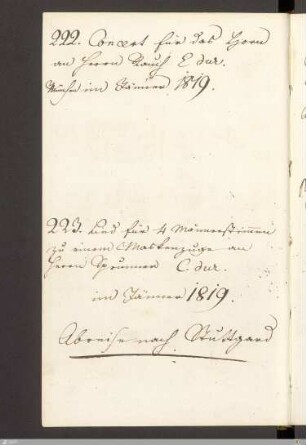 222. Concert für das Horn
an Herrn Rauch E dur.
München im Jänner 1819.
223. Lied für 4 Männerstimmen
zu einem Maskenzuge an
Herrn Sprunner C dur.
im Jänner 1819.
Abreise nach Stuttgard